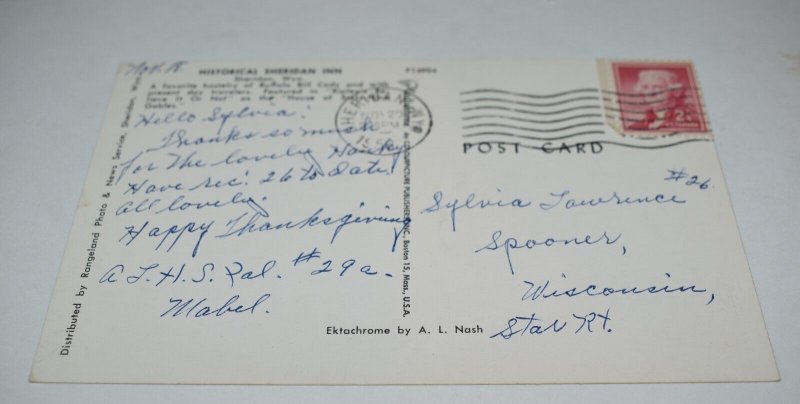 Nov. 18.
HISTORICAL SHERIDAN INN
Sheridan, Wyo.
A favorite hostelry of Buffalo Bill Cody and with
present day travelers. Featured in "Ripley's Be-
lieve It Or Not" as the "House of
Gables."
Hello Sylvia!
Thanks so much
for the lovely Hanky
Have rec'. 26 to date.
all lovely.
Happy Thanksgiving
A L. H. S. Pal. #29a.
Mabel.
Distributed by Rangeland Photo & News Service, Sheridan, Wyo.
COLOURPICTURE PUBLISHERS, INC., Boston 15, Mass., U.S.A.
Ektachrome by A. L. Nash
2¢
POST CARD
#26.
Sylvia Lawrence
Spooner,
Wisconsin,
Star Rt.